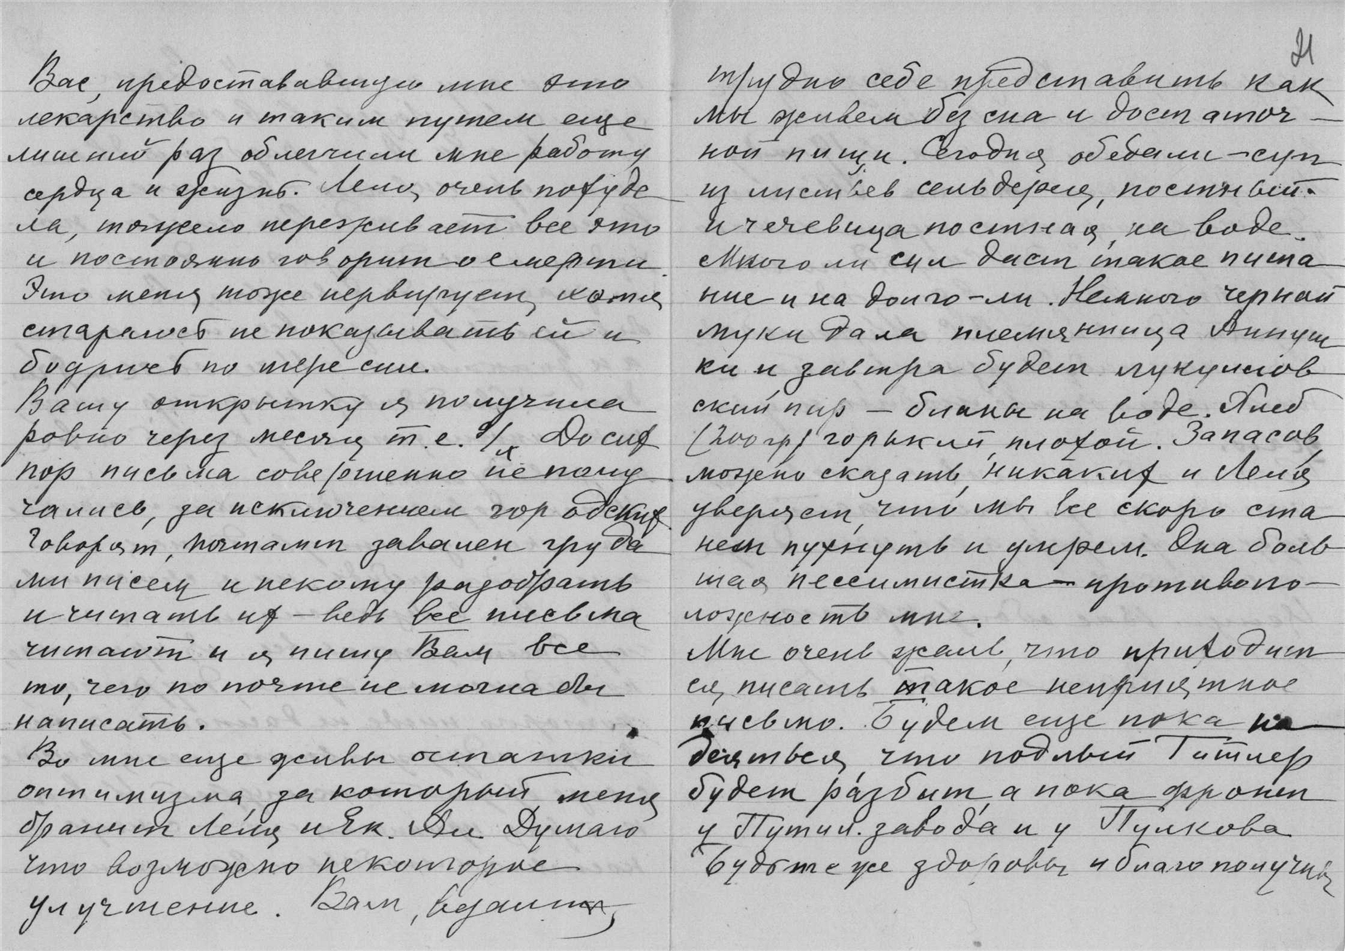 Вас, предостававшую мне это
лекарство и таким путем еще
лишний раз облегчили мне работу
сердца и жизнь. Леля очень похуде
ла, тяжело переживает все это
и постоянно говорит о смерти.
Это меня тоже нервирует, хотя
стараюсь не показывать ей и
бодрись по мере сил.
Вашу открытку я получила
ровно через месяц т.е.
До сих
пор письма совершенно не полу
чались, за исключением городских
Говорят, почтамт завален груда
ми писем и некому разобрать
и читать их – ведь все письма
читают и я пишу Вам все
то, чего по почте не могла бы
написать.
Во мне еще живы остатки
оптимизма, за который меня
бранит Леля и Ек. Ал. Думаю
что возможно некоторое
улучшение. Вам, вдали,
21
трудно себе представить как
мы живем без сна и достаточ–
ной пищи. Сегодня обедали – суп
из листьев сельдерея, постный
и чечевица постная, на воде.
Много ли сил даст такое пита
ние и на долго-ли. Немного черной
муки дала племянница Аннуш
ки и завтра будет лукуллов
ский пир – блины на воде. Хлеб
(200 гр) горький, плохой. Запасов,
можно сказать, никаких и Леля
уверяет, что мы все скоро ста
нем пухнуть и умрем. Она боль
шая пессимистка – противопо–
ложность мне.
Мне очень жаль, что приходит
ся писать такое неприятное
письмо. Будем еще пока на
деяться, что подлый Гитлер
будет разбит, а пока фронт
у Путил. завода и у Пулкова
Будьте же здоровы и благополучны